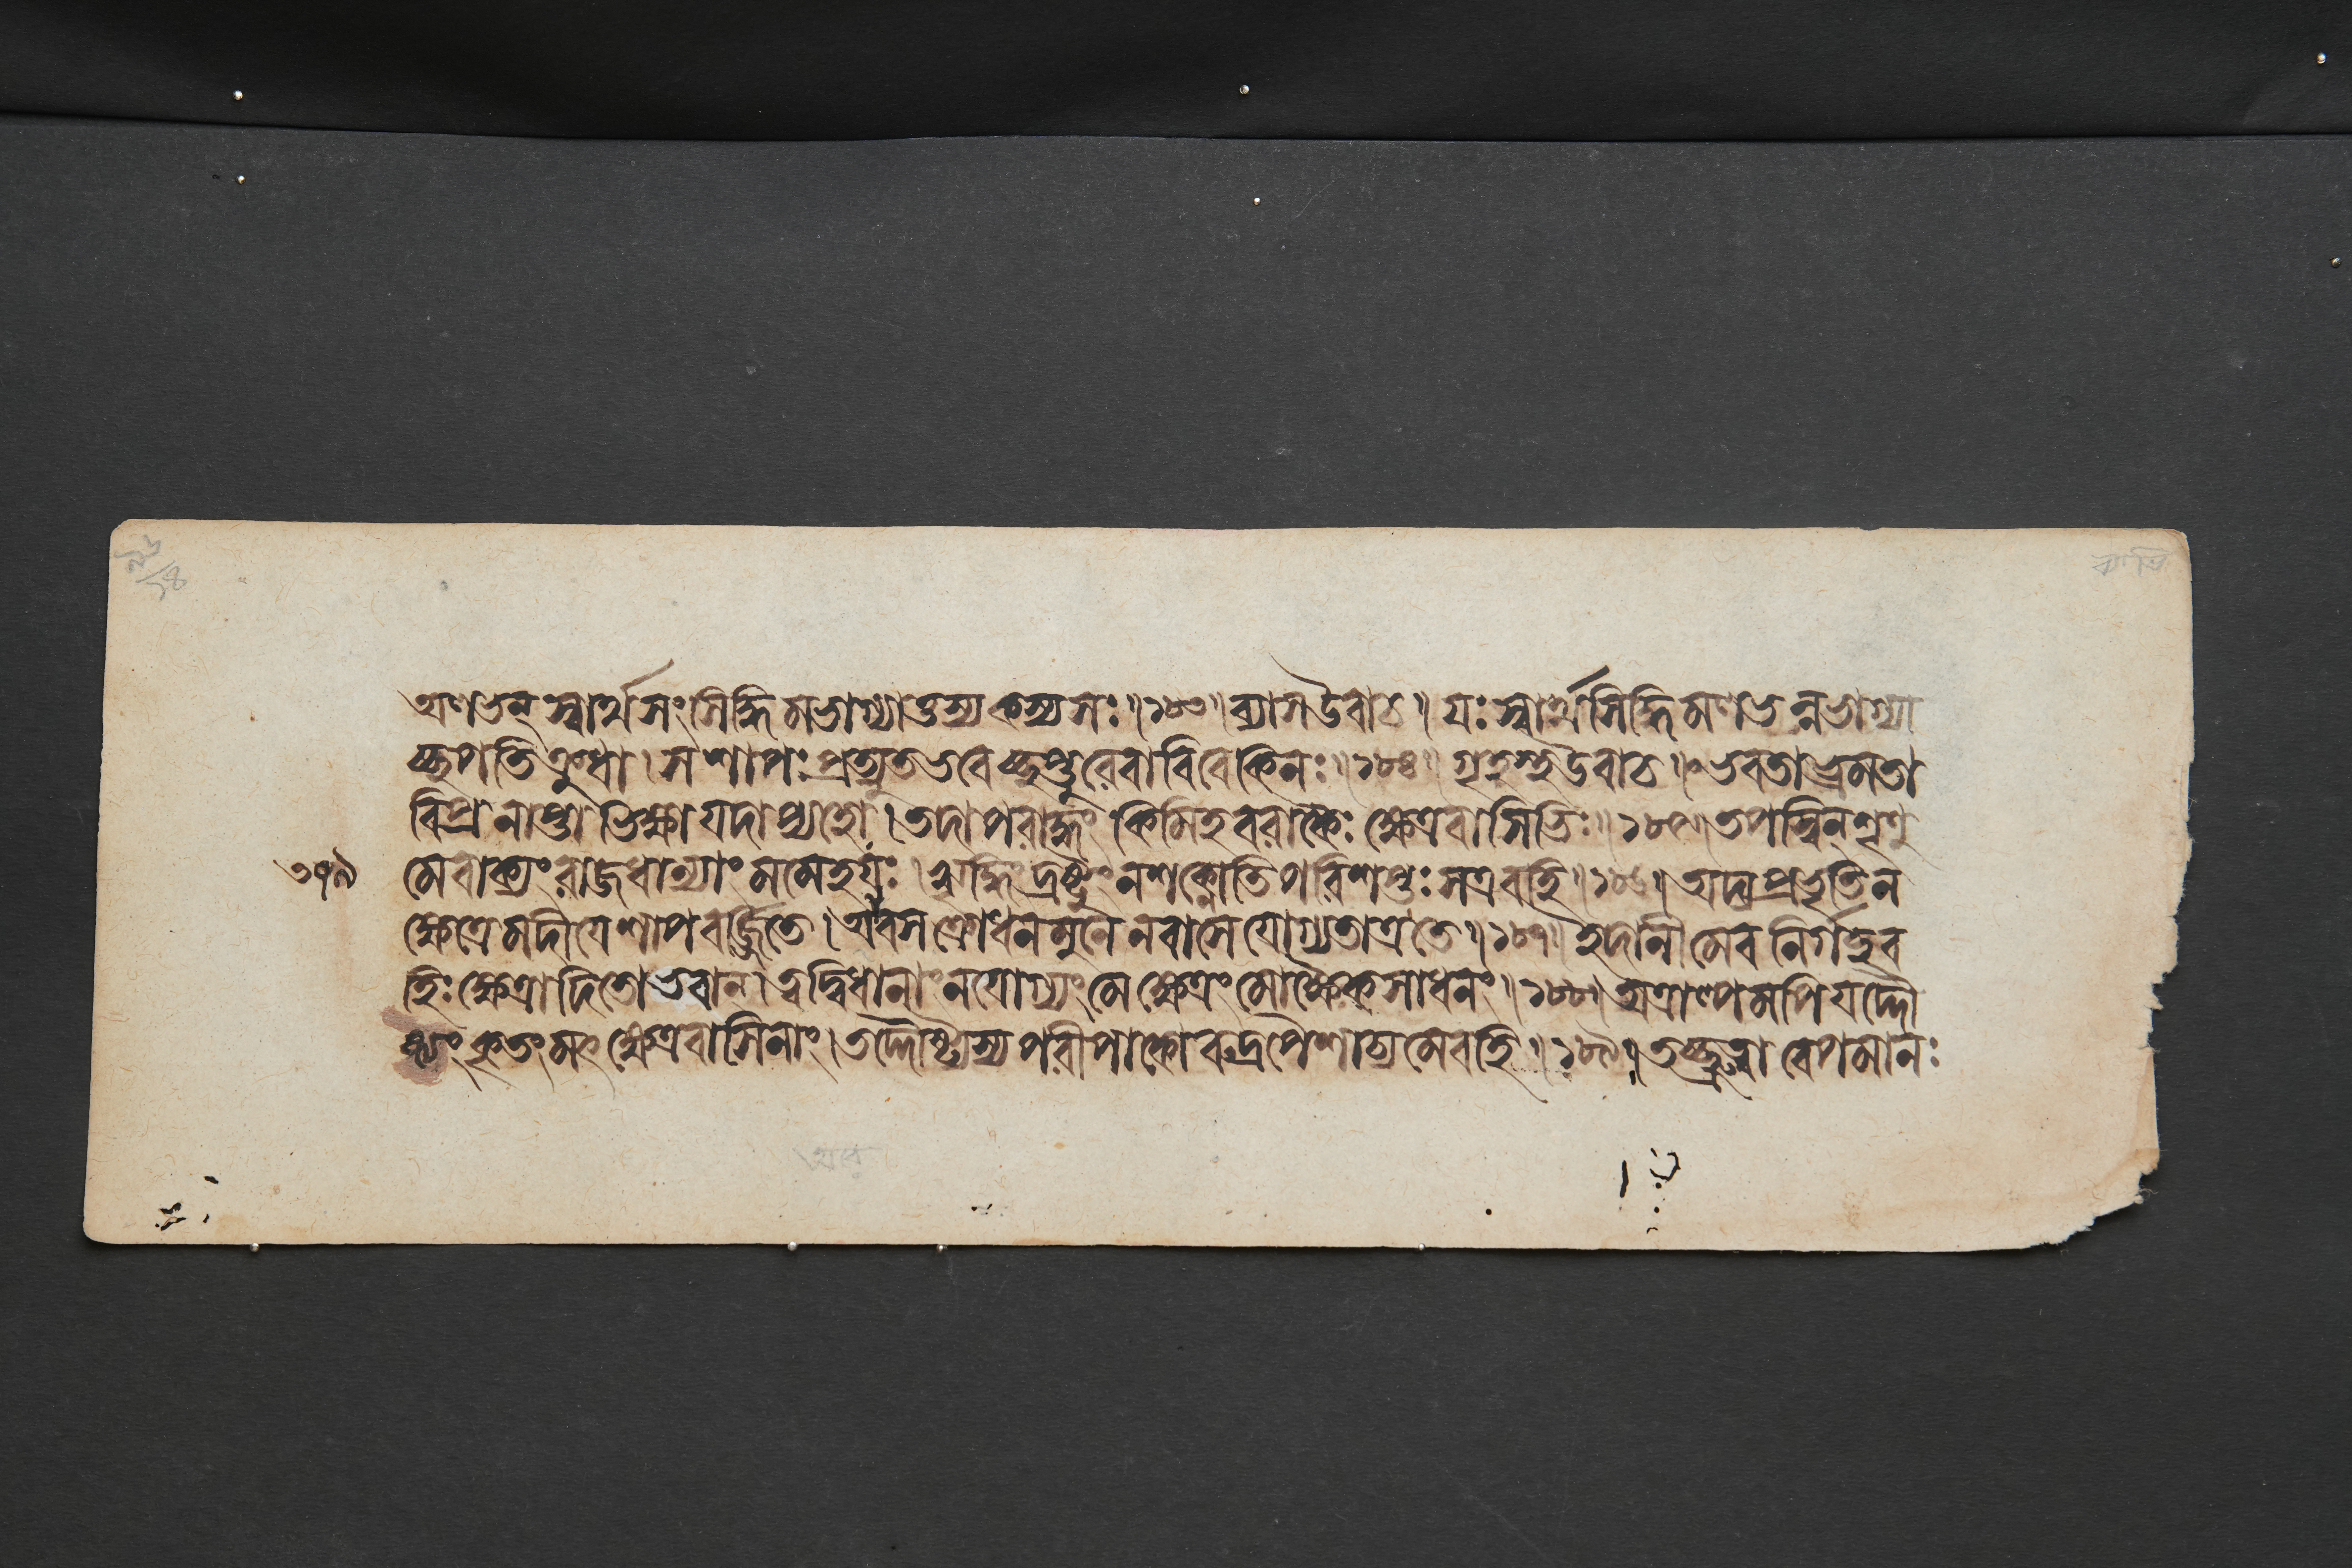 অলভন্ স্বার্থসংসিদ্ধিমভাগ্যাত্তস্য কস্য সঃ॥১৮৩॥ব্যাস উবাচ॥যঃ স্বার্থসিদ্ধিমলভন্নভাগ্যা
চ্ছপতি ক্রুধা।স শাপঃ প্রত্যুত ভবেচ্ছপ্তুরেবাবিবেকিনঃ॥১৮৪॥গৃহস্থ উবাচ॥ভবতা ভ্রমতা
বিপ্র নাপ্তা ভিক্ষা যদাপ্যহো।তদাপরাদ্ধং কিমিহ বরাকৈঃ ক্ষেত্রবাসিভিঃ॥১৮৫॥তপস্বিন্ শৃণু
৩৭৯ মে বাক্যং রাজধান্যাং মমেহ যঃ।ঋদ্ধিং দ্রষ্টুং ন শক্নোতি পরিশপ্তঃ স এব হি॥১৮৬॥অদ্যপ্রভৃতি ন
ক্ষেত্রে মদীয়ে শাপবর্জ্জিতে।আবস ক্রোধন মুনে ন বাসে যোগ্যতাত্র তে॥১৮৭॥ইদানীমেব নির্গচ্ছ ব
হিঃ ক্ষেত্রাদিতো ভবান্।ত্বদ্বিধানাং ন যোগ্যং মে ক্ষেত্রং মোক্ষৈকসাধনং॥১৮৮॥অত্রাল্পমপি যদ্দৌ
ষ্ট্যং কৃতং মৎক্ষেত্রবাসিনাং।তদ্দৌষ্ট্যস্য পরীপাকো রুদ্রপৈশাচ্যমেব হি॥১৮৯॥তচ্ছ্রুত্বা বেপমানঃ